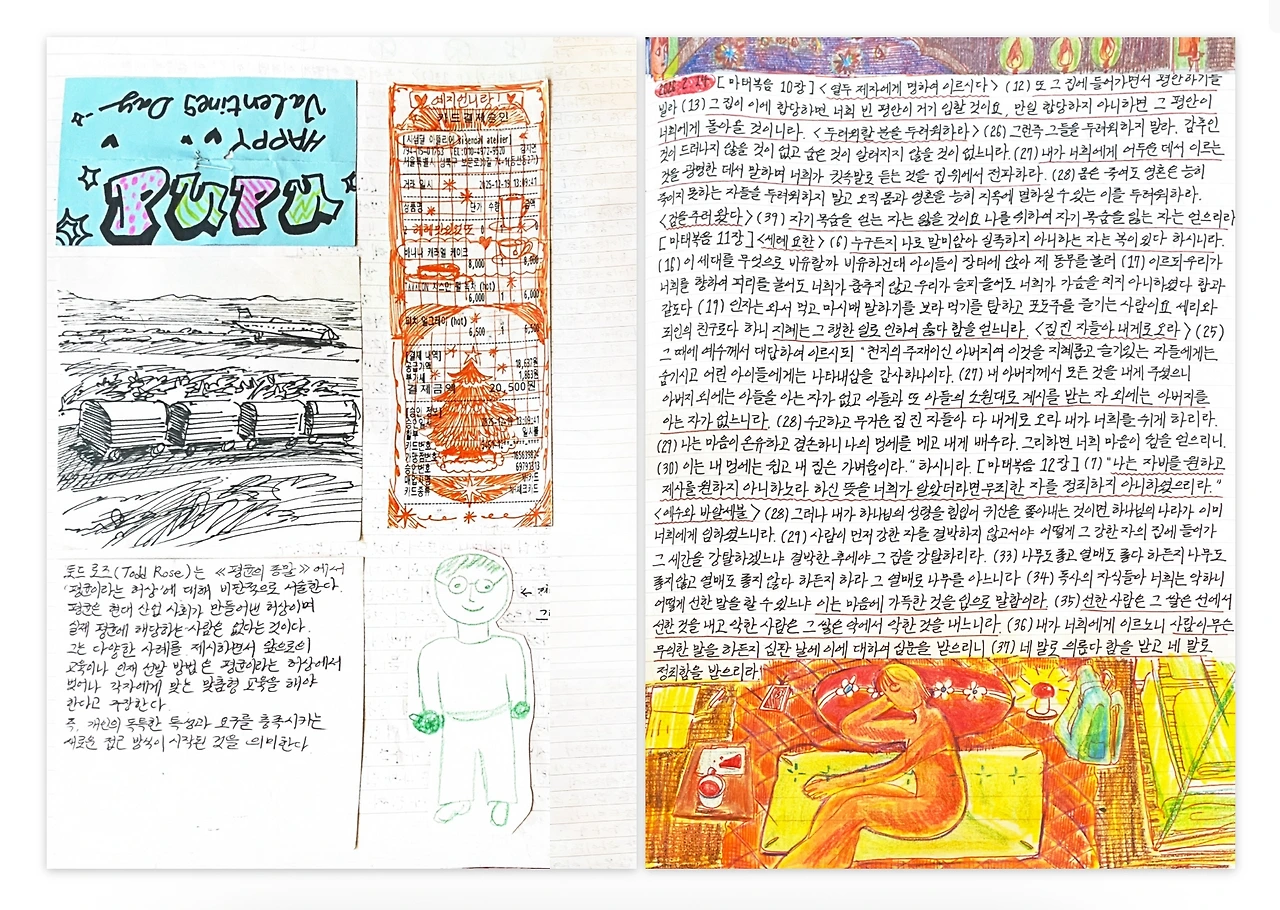 HAPPY
Valentine's Day
여기인나라!
카드결제승인
서울특별시 성북구 보문로30길
거래 일시 2025-12-19 13:09:41
상품명 단가 수량 금액
바나나 캐러멜 케이크
8,000 8,000
6,000 1 6,000
얼그레이 (hot)
6,500 1 6,500
[결제 내역]
공급가액 18,637원
부가세 1,863원
결제금액 20,500원
토드 로즈(Todd Rose)는 《평균의 종말》에서
'평균이라는 허상'에 대해 비판적으로 서술한다.
평균은 현대 산업 사회가 만들어낸 허상이며
실제 평균에 해당하는 사람은 없다는 것이다.
그는 다양한 사례를 제시하면서 앞으로의
교육이나 인재 선발 방법은 평균이라는 허상에서
벗어나 각자에게 맞는 맞춤형 교육을 해야
한다고 주장한다.
즉, 개인의 독특한 특성과 요구를 충족시키는
새로운 접근 방식이 시작된 것을 의미한다
2026.2.14 [마태복음 10장] <열두 제자에게 명하여 이르시다> (12) 또 그 집에 들어가면서 평안하기를
빌라 (13) 그 집이 이에 합당하면 너희 빈 평안이 거기 임할 것이요, 만일 합당하지 아니하면 그 평안이
너희에게 돌아올 것이니라. <두려워할 분을 두려워하라> (26) 그런즉 그들을 두려워하지 말라. 감추인
것이 드러나지 않을 것이 없고 숨은 것이 알려지지 않을 것이 없느니라. (27) 내가 너희에게 어두운 데서 이르는
것을 광명한 데서 말하며 너희가 귓속말로 듣는 것을 집 위에서 전파하라. (28) 몸은 죽여도 영혼은 능히
죽이지 못하는 자들을 두려워하지 말고 오직 몸과 영혼을 능히 지옥에 멸하실 수 있는 이를 두려워하라.
<검을 주러 왔다> (39) 자기 목숨을 얻는 자는 잃을 것이요 나를 위하여 자기 목숨을 잃는 자는 얻으리라
[마태복음 11장] <세례 요한> (6) 누구든지 나로 말미암아 실족하지 아니하는 자는 복이 있다 하시니라.
(16) 이 세대를 무엇으로 비유할까 비유하건대 아이들이 장터에 앉아 제 동무를 불러 (17) 이르되 우리가
너희를 향하여 피리를 불어도 너희가 춤추지 않고 우리가 슬피 울어도 너희가 가슴을 치지 아니하였다 함과
같도다 (19) 인자는 와서 먹고 마시매 말하기를 보라 먹기를 탐하고 포도주를 즐기는 사람이요 세리와
죄인의 친구로다 하니 지혜는 그 행한 일로 인하여 옳다 함을 얻느니라. <짐진 자들아 내게로 오라> (25)
그 때에 예수께서 대답하여 이르시되 "천지의 주재이신 아버지여 이것을 지혜롭고 슬기있는 자들에게는
숨기시고 어린 아이들에게는 나타내심을 감사하나이다. (27) 내 아버지께서 모든 것을 내게 주셨으니
아버지 외에는 아들을 아는 자가 없고 아들과 또 아들의 소원대로 계시를 받는 자 외에는 아버지를
아는 자가 없느니라. (28) 수고하고 무거운 짐 진 자들아 다 내게로 오라 내가 너희를 쉬게 하리라.
(29) 나는 마음이 온유하고 겸손하니 나의 멍에를 메고 내게 배우라. 그리하면 너희 마음이 쉼을 얻으리니.
(30) 이는 내 멍에는 쉽고 내 짐은 가벼움이라." 하시니라. [마태복음 12장] (7) "나는 자비를 원하고
제사를 원하지 아니하노라 하신 뜻을 너희가 알았더라면 무죄한 자를 정죄하지 아니하였으리라."
<예수와 바알세불> (28) 그러나 내가 하나님의 성령을 힘입어 귀신을 쫓아내는 것이면 하나님의 나라가 이미
너희에게 임하였느니라. (29) 사람이 먼저 강한 자를 결박하지 않고서야 어떻게 그 강한 자의 집에 들어가
그 세간을 강탈하겠느냐 결박한 후에야 그 집을 강탈하리라. (33) 나무도 좋고 열매도 좋다 하든지 나무도
좋지 않고 열매도 좋지 않다 하든지 하라 그 열매로 나무를 아느니라 (34) 독사의 자식들아 너희는 악하니
어떻게 선한 말을 할 수 있느냐 이는 마음에 가득한 것을 입으로 말함이라. (35) 선한 사람은 그 쌓은 선에서
선한 것을 내고 악한 사람은 그 쌓은 악에서 악한 것을 내느니라. (36) 내가 너희에게 이르노니 사람이 무슨
무익한 말을 하든지 심판 날에 이에 대하여 심문을 받으리니 (37) 네 말로 의롭다 함을 받고 네 말로
정죄함을 받으리라